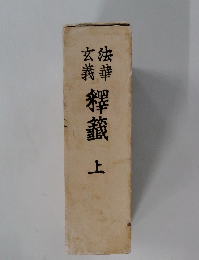 法華
玄義
釋籤
上